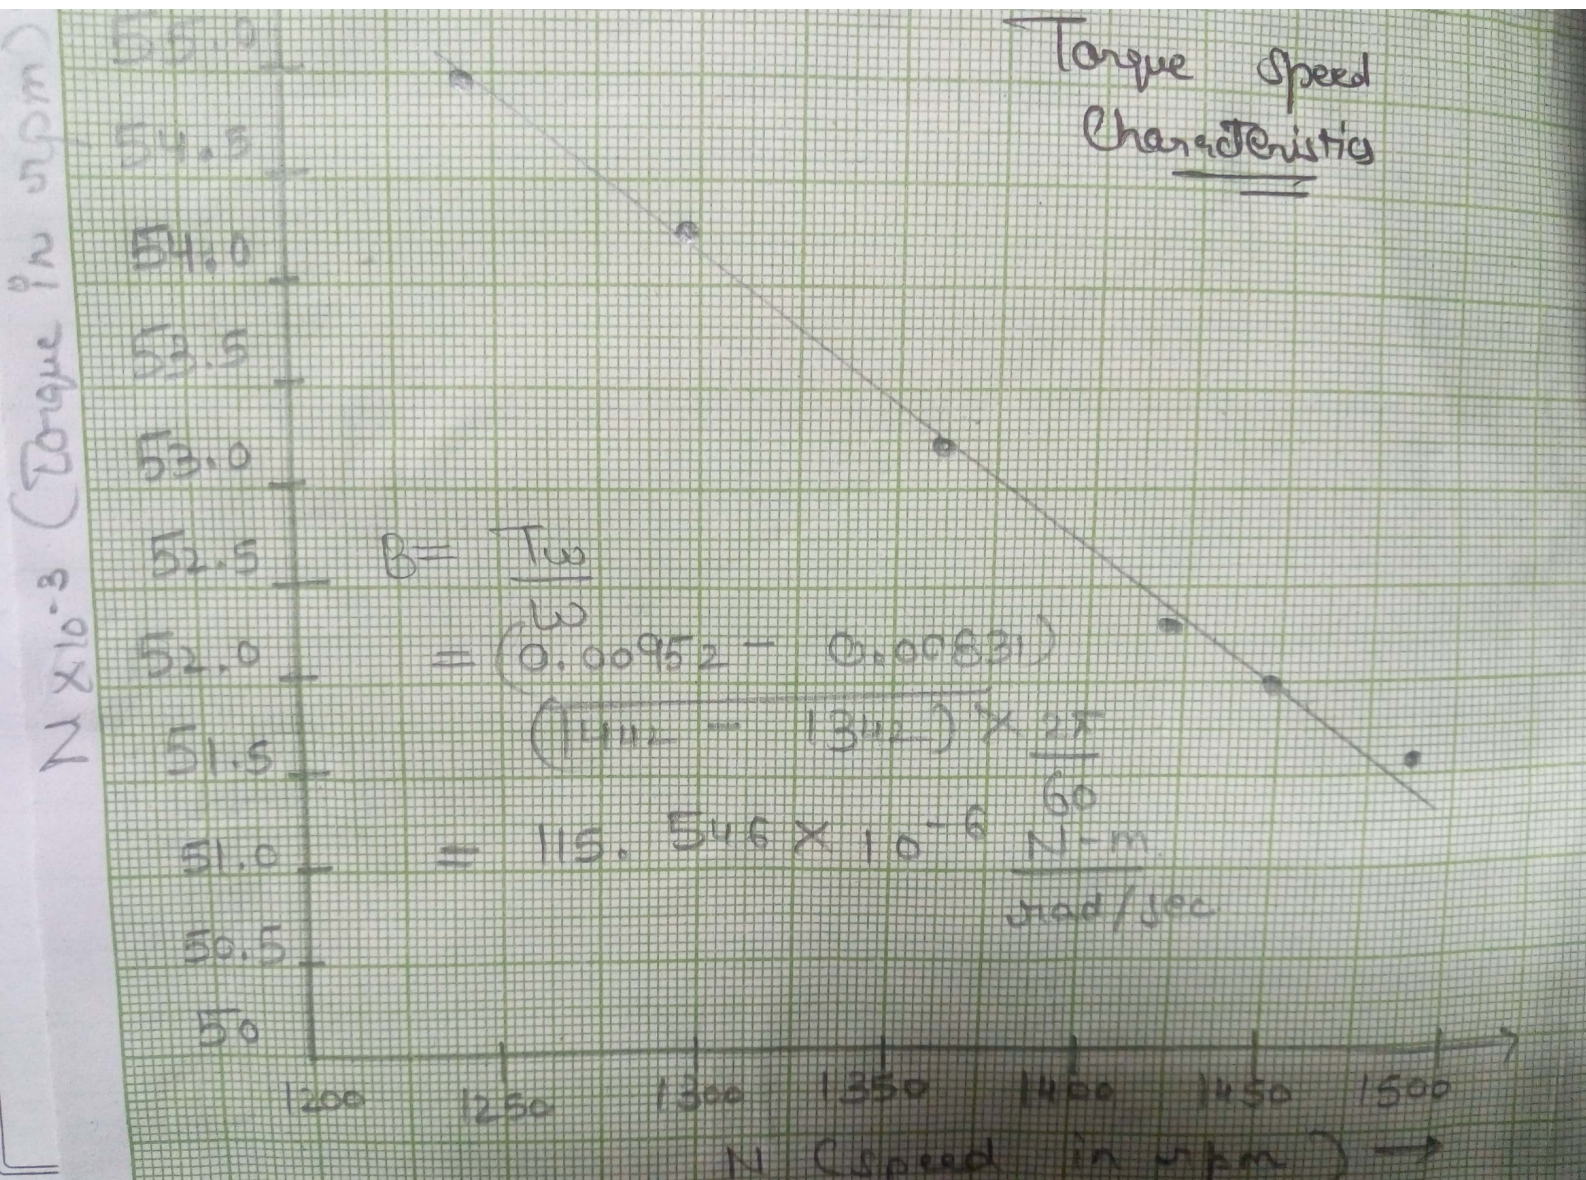 Torque Speed
Characteristics
N x10-3 (Torque in rpm)
55.0
54.5
54.0
53.5
53.0
52.5
52.0
51.5
51.0
50.5
50
B = Tω
ω
= (0.00952 - 0.00831)
(1442 - 1342) × 2π
60
= 115.546 × 10-6 N-m
rad/sec
1200 1250 1300 1350 1400 1450 1500
N (speed in rpm) →